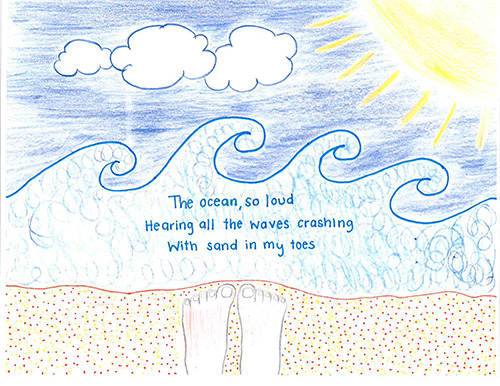 The ocean, so loud
Hearing all the waves crashing
With sand in my toes